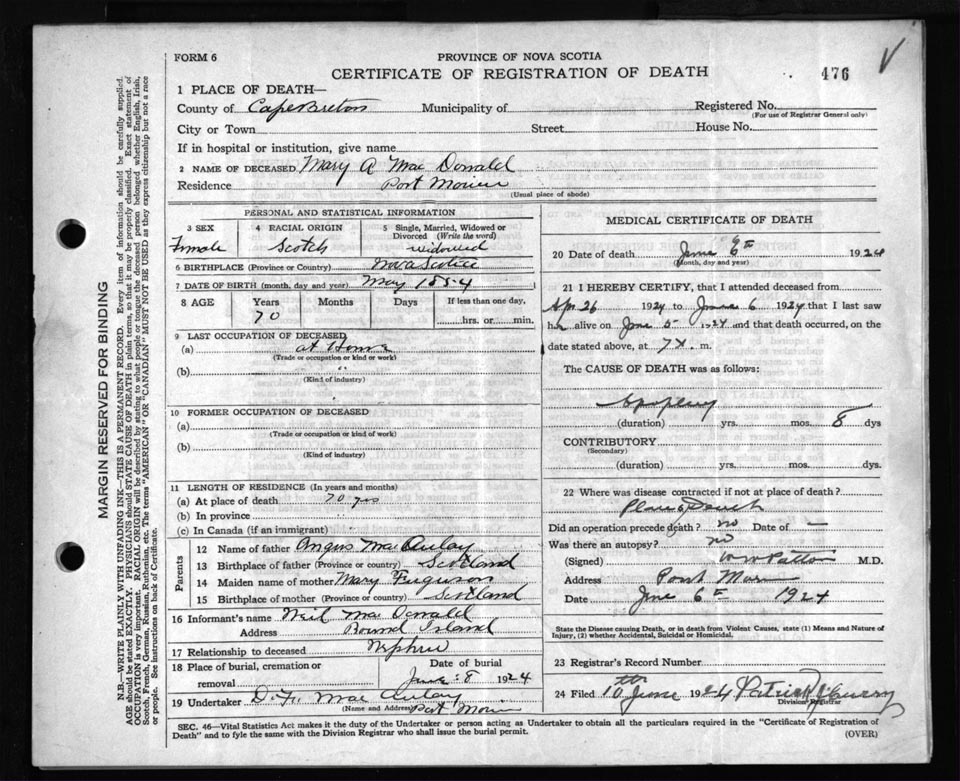 FORM 6
PROVINCE OF NOVA SCOTIA
CERTIFICATE OF REGISTRATION OF DEATH
476
1 PLACE OF DEATH—
County of Cape Breton Municipality of Registered No.
(For use of Registrar General only)
City or Town Street House No.
If in hospital or institution, give name
2 NAME OF DECEASED Mary A Mac Donald
Residence Port Morien
(Usual place of abode)
PERSONAL AND STATISTICAL INFORMATION
3 SEX
Female
4 RACIAL ORIGIN
Scotch
5 Single, Married, Widowed or Divorced (Write the word)
widowed
6 BIRTHPLACE (Province or Country) Nova Scotia
7 DATE OF BIRTH (month, day, and year) May 1854
8 AGE Years Months Days If less than one day,
70 hrs. or min.
9 LAST OCCUPATION OF DECEASED
(a) at Home
(Trade or occupation or kind or work)
(b) "
(Kind of industry)
10 FORMER OCCUPATION OF DECEASED
(a)
(Trade or occupation or kind of work)
(b)
(Kind of industry)
11 LENGTH OF RESIDENCE (In years and months)
(a) At place of death 70 yrs
(b) In province "
(c) In Canada (if an immigrant) "
Parents
12 Name of father Angus MacAulay
13 Birthplace of father (Province or country) Scotland
14 Maiden name of mother Mary Ferguson
15 Birthplace of mother (Province or country) Scotland
16 Informant's name Neil Mac Donald
Address Round Island
17 Relationship to deceased Nephew
18 Place of burial, cremation or removal
Date of burial
June 8 1924
19 Undertaker D. Mac Aulay
(Name and Address) Port Morien
MEDICAL CERTIFICATE OF DEATH
20 Date of death June 6th 1924
(Month, day and year)
21 I HEREBY CERTIFY, that I attended deceased from
Apr 26 1924 to June 6 1924 that I last saw
her alive on June 5 1924 and that death occurred, on the
date stated above, at 7 m.
The CAUSE OF DEATH was as follows:
Apoplexy
(duration) yrs. mos. 8 dys
CONTRIBUTORY
(Secondary)
(duration) yrs. mos. dys.
22 Where was disease contracted if not at place of death?
Place Death
Did an operation precede death? no Date of —
Was there an autopsy? no
(Signed) W W Patton M.D.
Address Port Morien
Date June 6th 1924
State the Disease causing Death, or in death from Violent Causes, state (1) Means and Nature of
Injury, (2) whether Accidental, Suicidal or Homicidal.
23 Registrar's Record Number
24 Filed 10th June 1924 Patrick
Division Registrar
SEC. 46—Vital Statistics Act makes it the duty of the Undertaker or person acting as Undertaker to obtain all the particulars required in the "Certificate of Registration of
Death" and to fyle the same with the Division Registrar who shall issue the burial permit. (OVER)
MARGIN RESERVED FOR BINDING
N.B.—WRITE PLAINLY WITH UNFADING INK—THIS IS A PERMANENT RECORD. Every item of information should be carefully supplied.
AGE should be stated EXACTLY. PHYSICIANS should STATE CAUSE OF DEATH in plain terms, so that it may be properly classified. Exact statement of
OCCUPATION is very important. RACIAL ORIGIN will be described by stating to what people or tongue the deceased person belonged whether English, Irish,
Scotch, French, German, Russian, Ruthenian, etc. The terms "AMERICAN" OR "CANADIAN" MUST NOT BE USED as they express citizenship but not a race
or people. See instructions on back of Certificate.